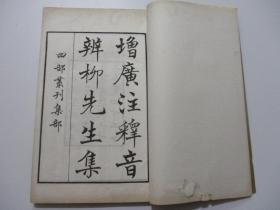 增廣注釋音
辨柳先生集
四部叢刊集部